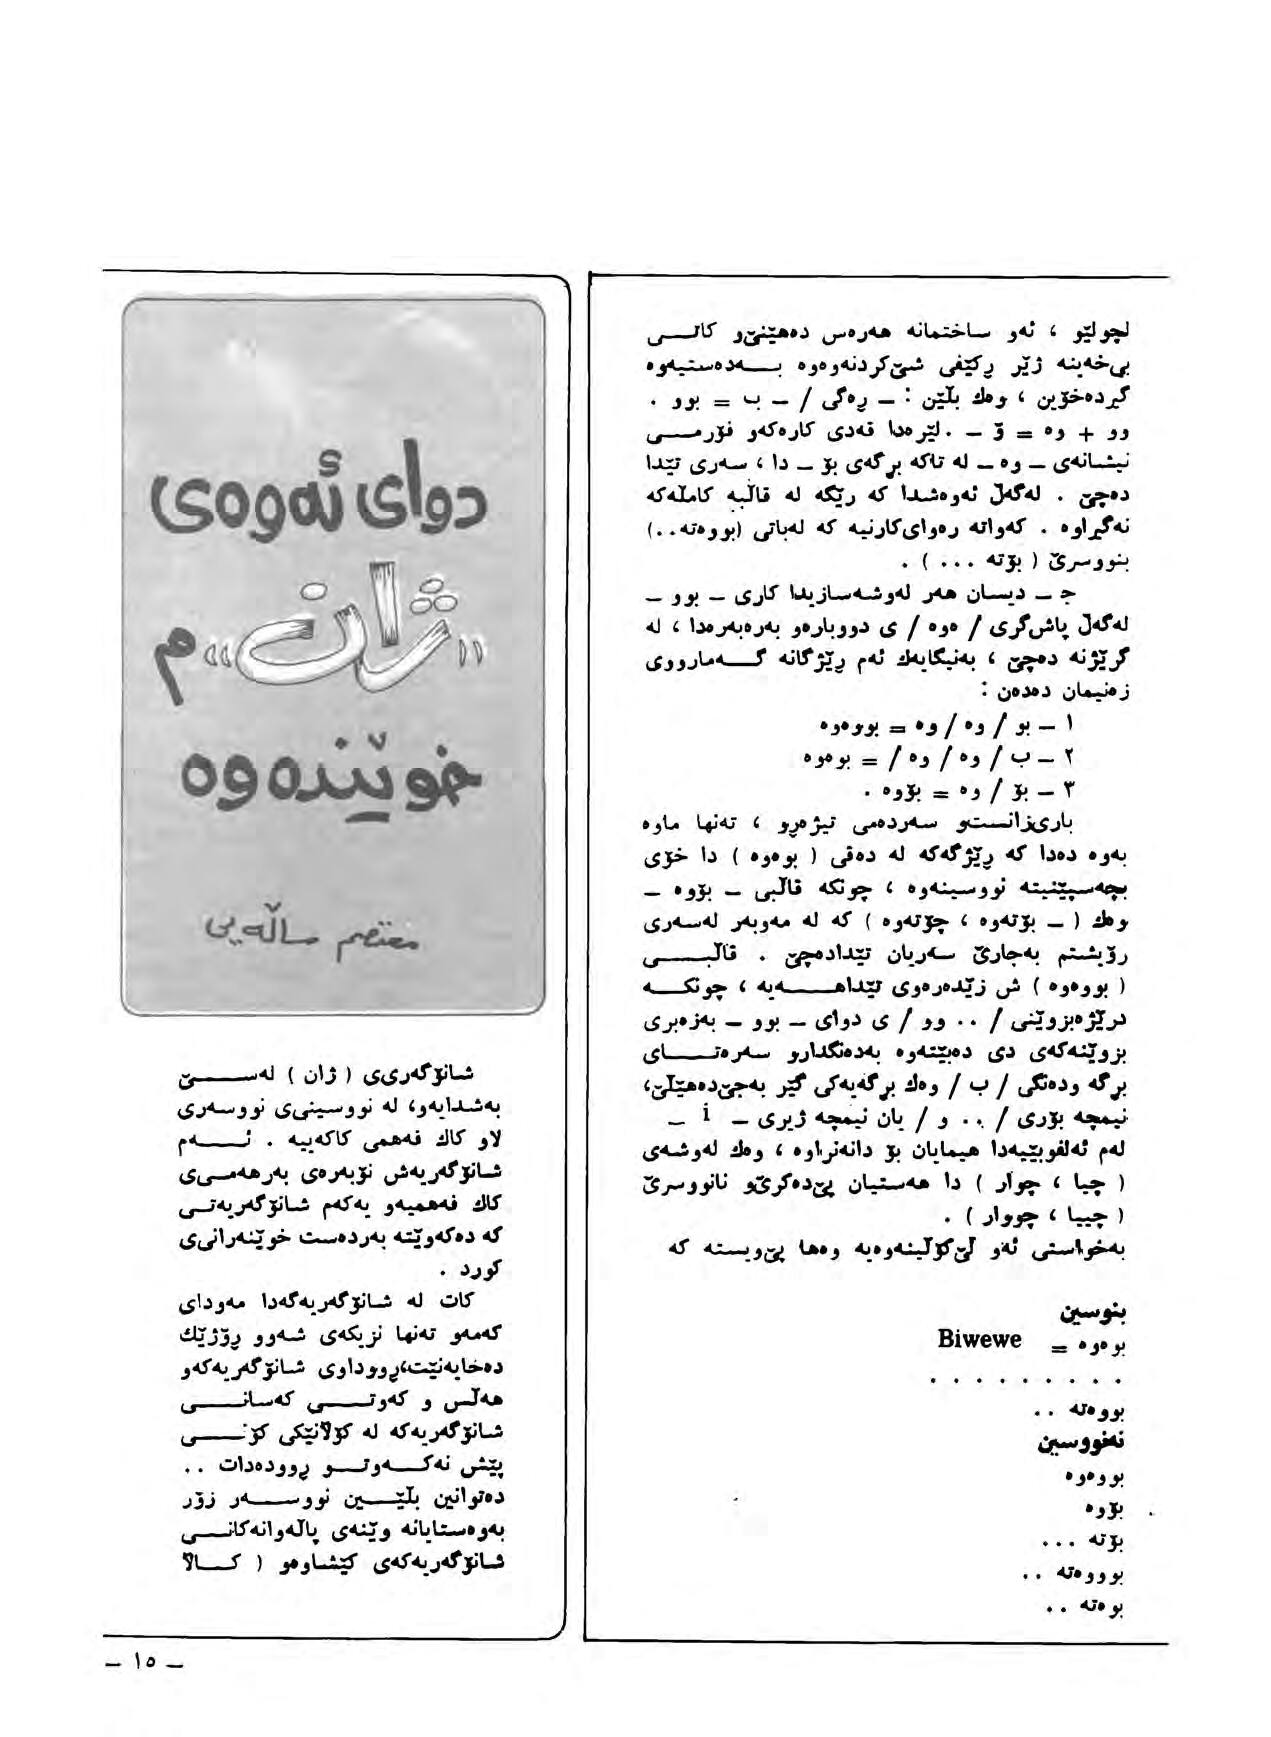 لچولێو ، ئەو ساختمانە هەرەس دەهێنێ‌و کاتـــی
بی‌خەینە ژێر ڕکێفی شێ‌کردنەوەوە بـــەدەستیەوە
گیردەخۆین ، وەك بڵێن : ــ ڕەگی / ــ ب = بوو .
وو + وە = ۆ ــ . لێرەدا قەدی کارەکەو فۆڕمـــی
نیشانەی ــ وە ــ لە تاکە برگەی بۆ ــ دا ، سەری تێدا
دەچێ . لەگەڵ ئەوەشدا کە ڕێگە لە قاڵبە کاملەکە
نەگیراوە . کەواتە رەوای‌کارنیە کە لەباتی (بووەتە..)
بنووسرێ ( بۆتە ... ) .
جـ ــ دیسان هەر لەوشەسازیدا کاری ــ بوو ــ
لەگەڵ پاش‌گری / ەوە / ی دووبارەو بەرەبەرەدا ، لە
گرێژنە دەچێ ، بەنیگایەك ئەم ڕێژگانە گـــەمارووی
زەنیمان دەدەن :
١ ــ بو / وە / وە = بووەوە
٢ ــ ب / وە / وە / = بوەوە
٣ ــ بۆ / وە = بۆوە .
باری‌زانستو سەردەمی تیژەڕو ، تەنها ماوە
بەوە دەدا کە ڕێژگەکە لە دەقی ( بوەوە ) دا خۆی
بچەسپێنیتە نووسینەوە ، چونکە قاڵبی ــ بۆوە ــ
وەك ( ــ بۆتەوە ، چۆتەوە ) کە لە مەوبەر لەسەری
رۆیشتم بەجارێ سەریان تێدادەچێ . قاڵبـــی
( بووەوە ) ش زێدەرەوی تێداهـــەیە ، چونکـــە
درێژەبزوێنی / .. وو / ی دوای ــ بوو ــ بەزەبری
بزوێنەکەی دی دەبێتەوە بەدەنگدارو سەرەتـــای
برگە ودەنگی / ب / وەك برگەیەکی گێر بەجێ‌دەهێڵێ،
نیمچە بۆری / .. و / یان نیمچە ژیری ــ i ــ
لەم ئەلفوبێیەدا هیمایان بۆ دانەنراوە ، وەك لەوشەی
( چیا ، چوار ) دا هەستیان پێ‌دەکرێ‌و نانووسرێ
( چییا ، چووار ) .
بەخواستی ئەو لێ‌کۆڵینەوەیە وەها پێ‌ویستە کە
بنوسین
بوەوە = Biwewe
. . . . . . . . .
بووەتە ..
نەنووسین
بووەوە
بۆوە
بۆتە ...
بوووەتە ..
بوەتە ..
دوای ئەوەی
«ژان» م
خوێندەوە
معتصم ساڵەیی
شانۆگەریی ( ژان ) لەســـێ
بەشدایەو، لە نووسینی نووسەری
لاو کاك فەهمی کاکەییە . ئـــەم
شانۆگەریەش نۆبەرەی بەرهەمی
کاك فەهمیەو یەکەم شانۆگەریەتـی
کە دەکەوێتە بەردەست خوێنەرانی
کورد .
کات لە شانۆگەریەگەدا مەودای
کەمەو تەنها نزیکەی شەوو ڕۆژێك
دەخایەنێت،ڕووداوی شانۆگەریەکەو
هەڵس و کەوتـــی کەسانـــی
شانۆگەریەکە لە کۆڵانێکی کۆنـــی
پێش نەکـــەوتـــو ڕوودەدات ..
دەتوانین بڵێـــین نووســـەر زۆر
بەوەستایانە وێنەی پاڵەوانەکانـــی
شانۆگەریەکەی کێشاوەو ( کـــاڵا
ــ ١٥ ــ